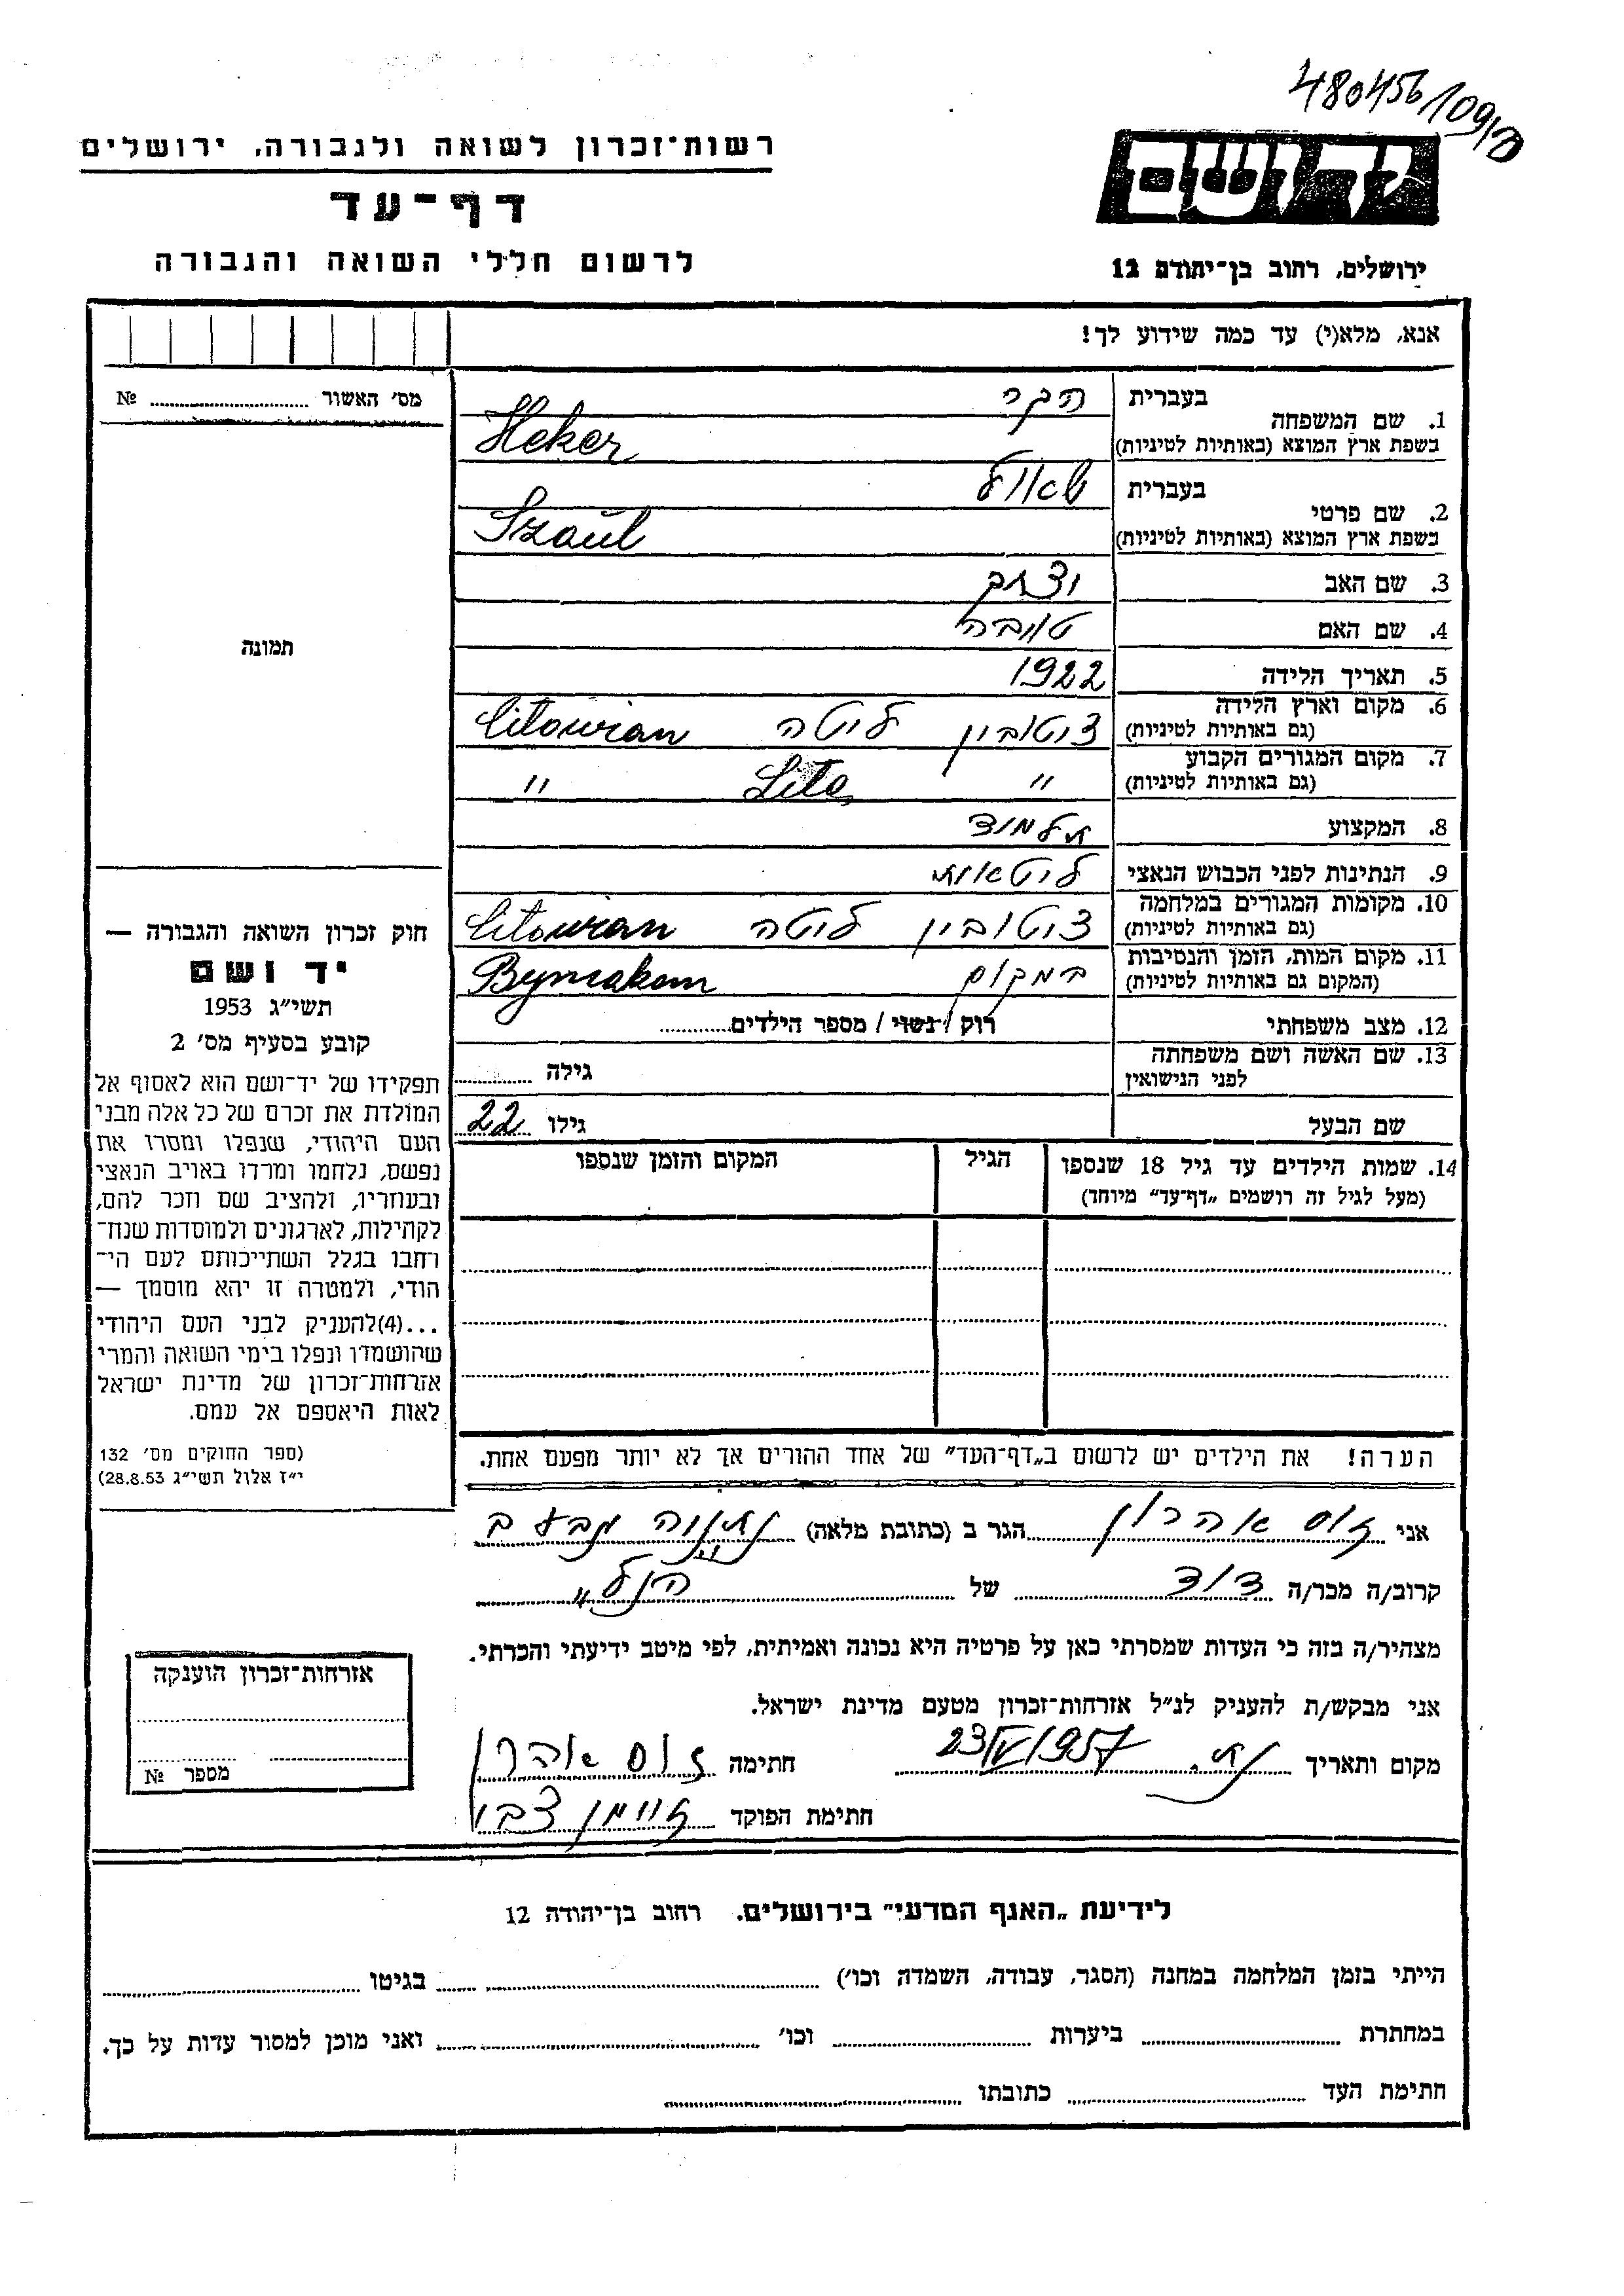 480456/109/ס
רשות־זכרון לשואה ולגבורה, ירושלים
דף־עד
לרשום חללי השואה והגבורה
יד ושם
ירושלים, רחוב בן־יהודה 12
אנא, מלא(י) עד כמה שידוע לך!
מס׳ האשור № 
תמונה
חוק זכרון השואה והגבורה —
יד ושם
תשי״ג 1953
קובע בסעיף מס׳ 2
תפקידו של יד־ושם הוא לאסוף אל
המולדת את זכרם של כל אלה מבני
העם היהודי, שנפלו ומסרו את
נפשם, נלחמו ומרדו באויב הנאצי
ובעוזריו, ולהציב שם וזכר להם,
לקהילות, לארגונים ולמוסדות שנח־
רחבו בגלל השתייכותם לעם הי־
הודי, ולמטרה זו יהא מוסמך —
...(4)להעניק לבני העם היהודי
שהושמדו ונפלו בימי השואה והמרי
אזרחות־זכרון של מדינת ישראל
לאות היאספם אל עמם.
(ספר החוקים מס׳ 132
י״ז אלול תשי״ג 28.8.53)
1. שם המשפחה בעברית הקר
בשפת ארץ המוצא (באותיות לטיניות) Heker
2. שם פרטי בעברית שאול
בשפת ארץ המוצא (באותיות לטיניות) Szaul
3. שם האב
4. שם האם טובה
5. תאריך הלידה 1922
6. מקום וארץ הלידה (גם באותיות לטיניות) ליטה
7. מקום המגורים הקבוע (גם באותיות לטיניות) " Lita "
8. המקצוע תלמוד
9. הנתינות לפני הכבוש הנאצי ליטאות
10. מקומות המגורים במלחמה (גם באותיות לטיניות) ליטה
11. מקום המות, הזמן והנסיבות (המקום גם באותיות לטיניות) במקום Bymakom
12. מצב משפחתי רוק / נשוי / מספר הילדים
13. שם האשה ושם משפחתה לפני הנישואין גילה
שם הבעל גילו 22
14. שמות הילדים עד גיל 18 שנספו
(מעל לגיל זה רושמים „דף־עד״ מיוחד)
הגיל
המקום והזמן שנספו
הערה! את הילדים יש לרשום ב„דף־העד״ של אחד ההורים אך לא יותר מפעם אחת.
אני זוס אהרון הגר ב (כתובת מלאה) נתניה
קרוב/ה מכר/ה דוד של הנ"ל
מצהיר/ה בזה כי העדות שמסרתי כאן על פרטיה היא נכונה ואמיתית, לפי מיטב ידיעתי והכרתי.
אני מבקש/ת להעניק לנ״ל אזרחות־זכרון מטעם מדינת ישראל.
מקום ותאריך 23/V/1957 חתימה זוס אהרן
חתימת הפוקד
אזרחות־זכרון הוענקה
מספר №
לידיעת „האגף המדעי״ בירושלים. רחוב בן־יהודה 12
הייתי בזמן המלחמה במחנה (הסגר, עבודה, השמדה וכו׳) בגיטו
במחתרת ביערות וכו׳ ואני מוכן למסור עדות על כך.
חתימת העד כתובתו